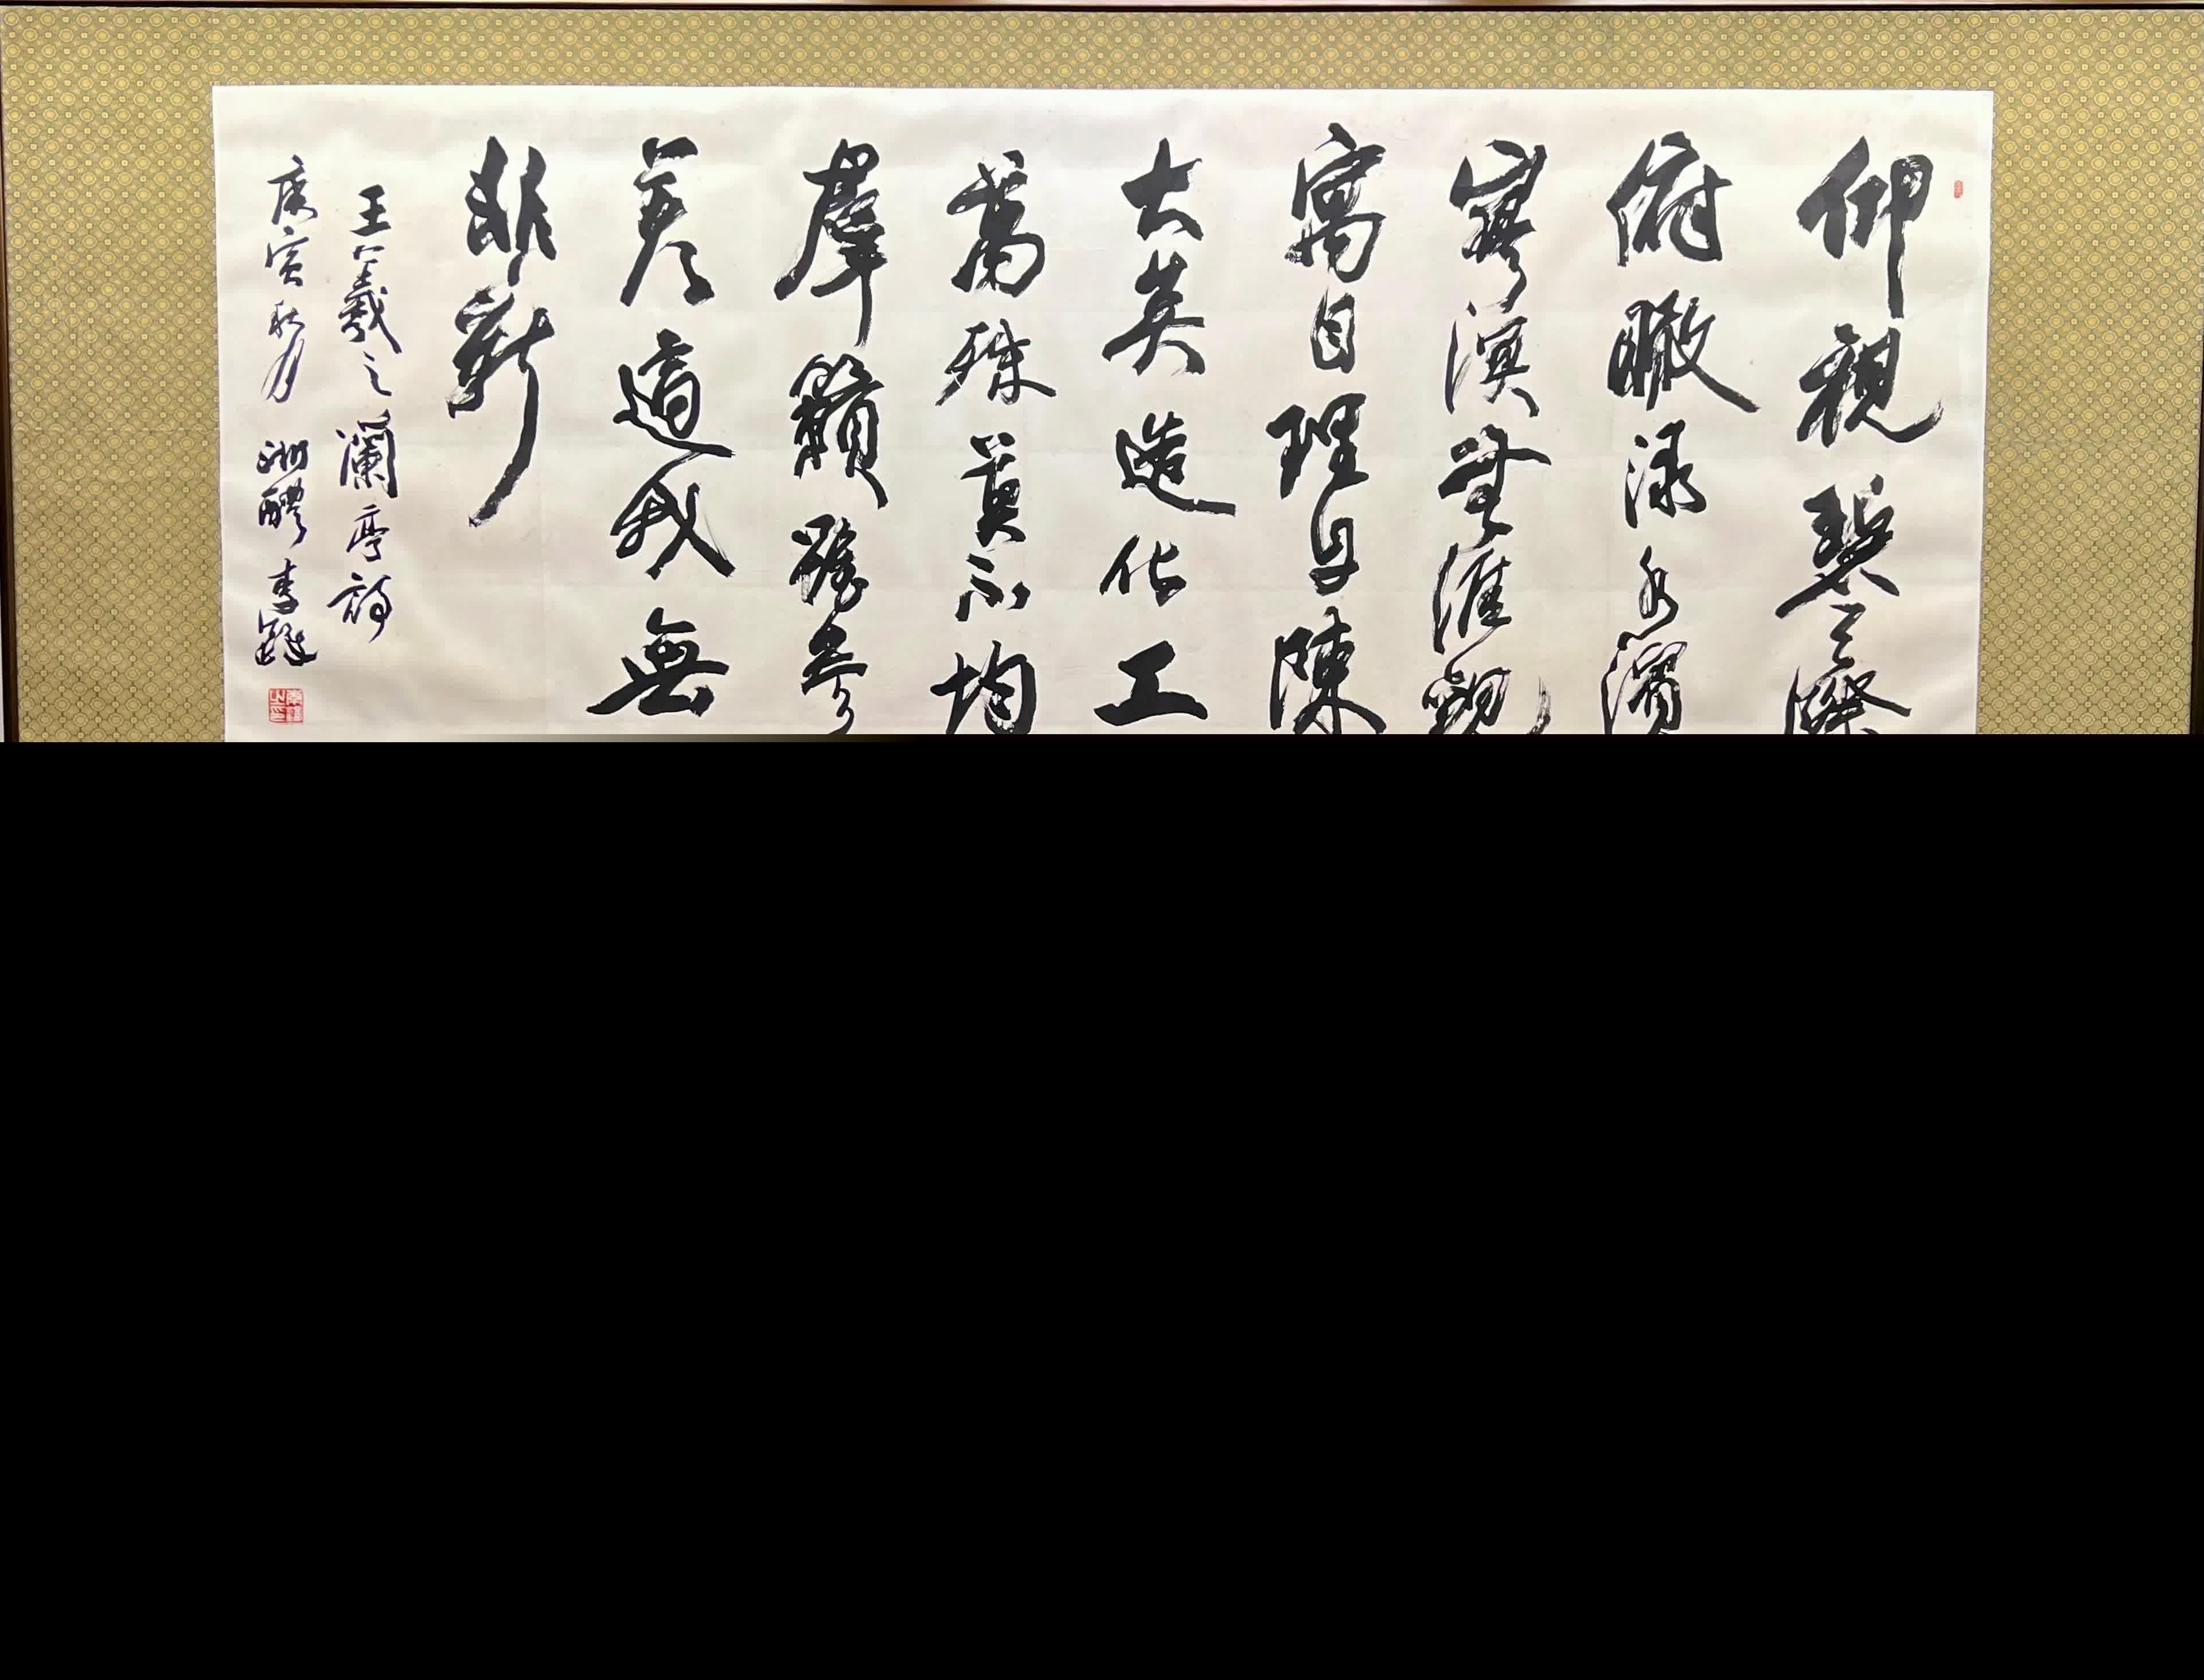 仰視碧天際
俯瞰淥水濱
寥無涯觀
寓目理自陳
大矣造化工
萬殊莫不均
羣籟雖參
差適我無
非新
王羲之蘭亭詩
庚寅秋月 湘醴 李鐸